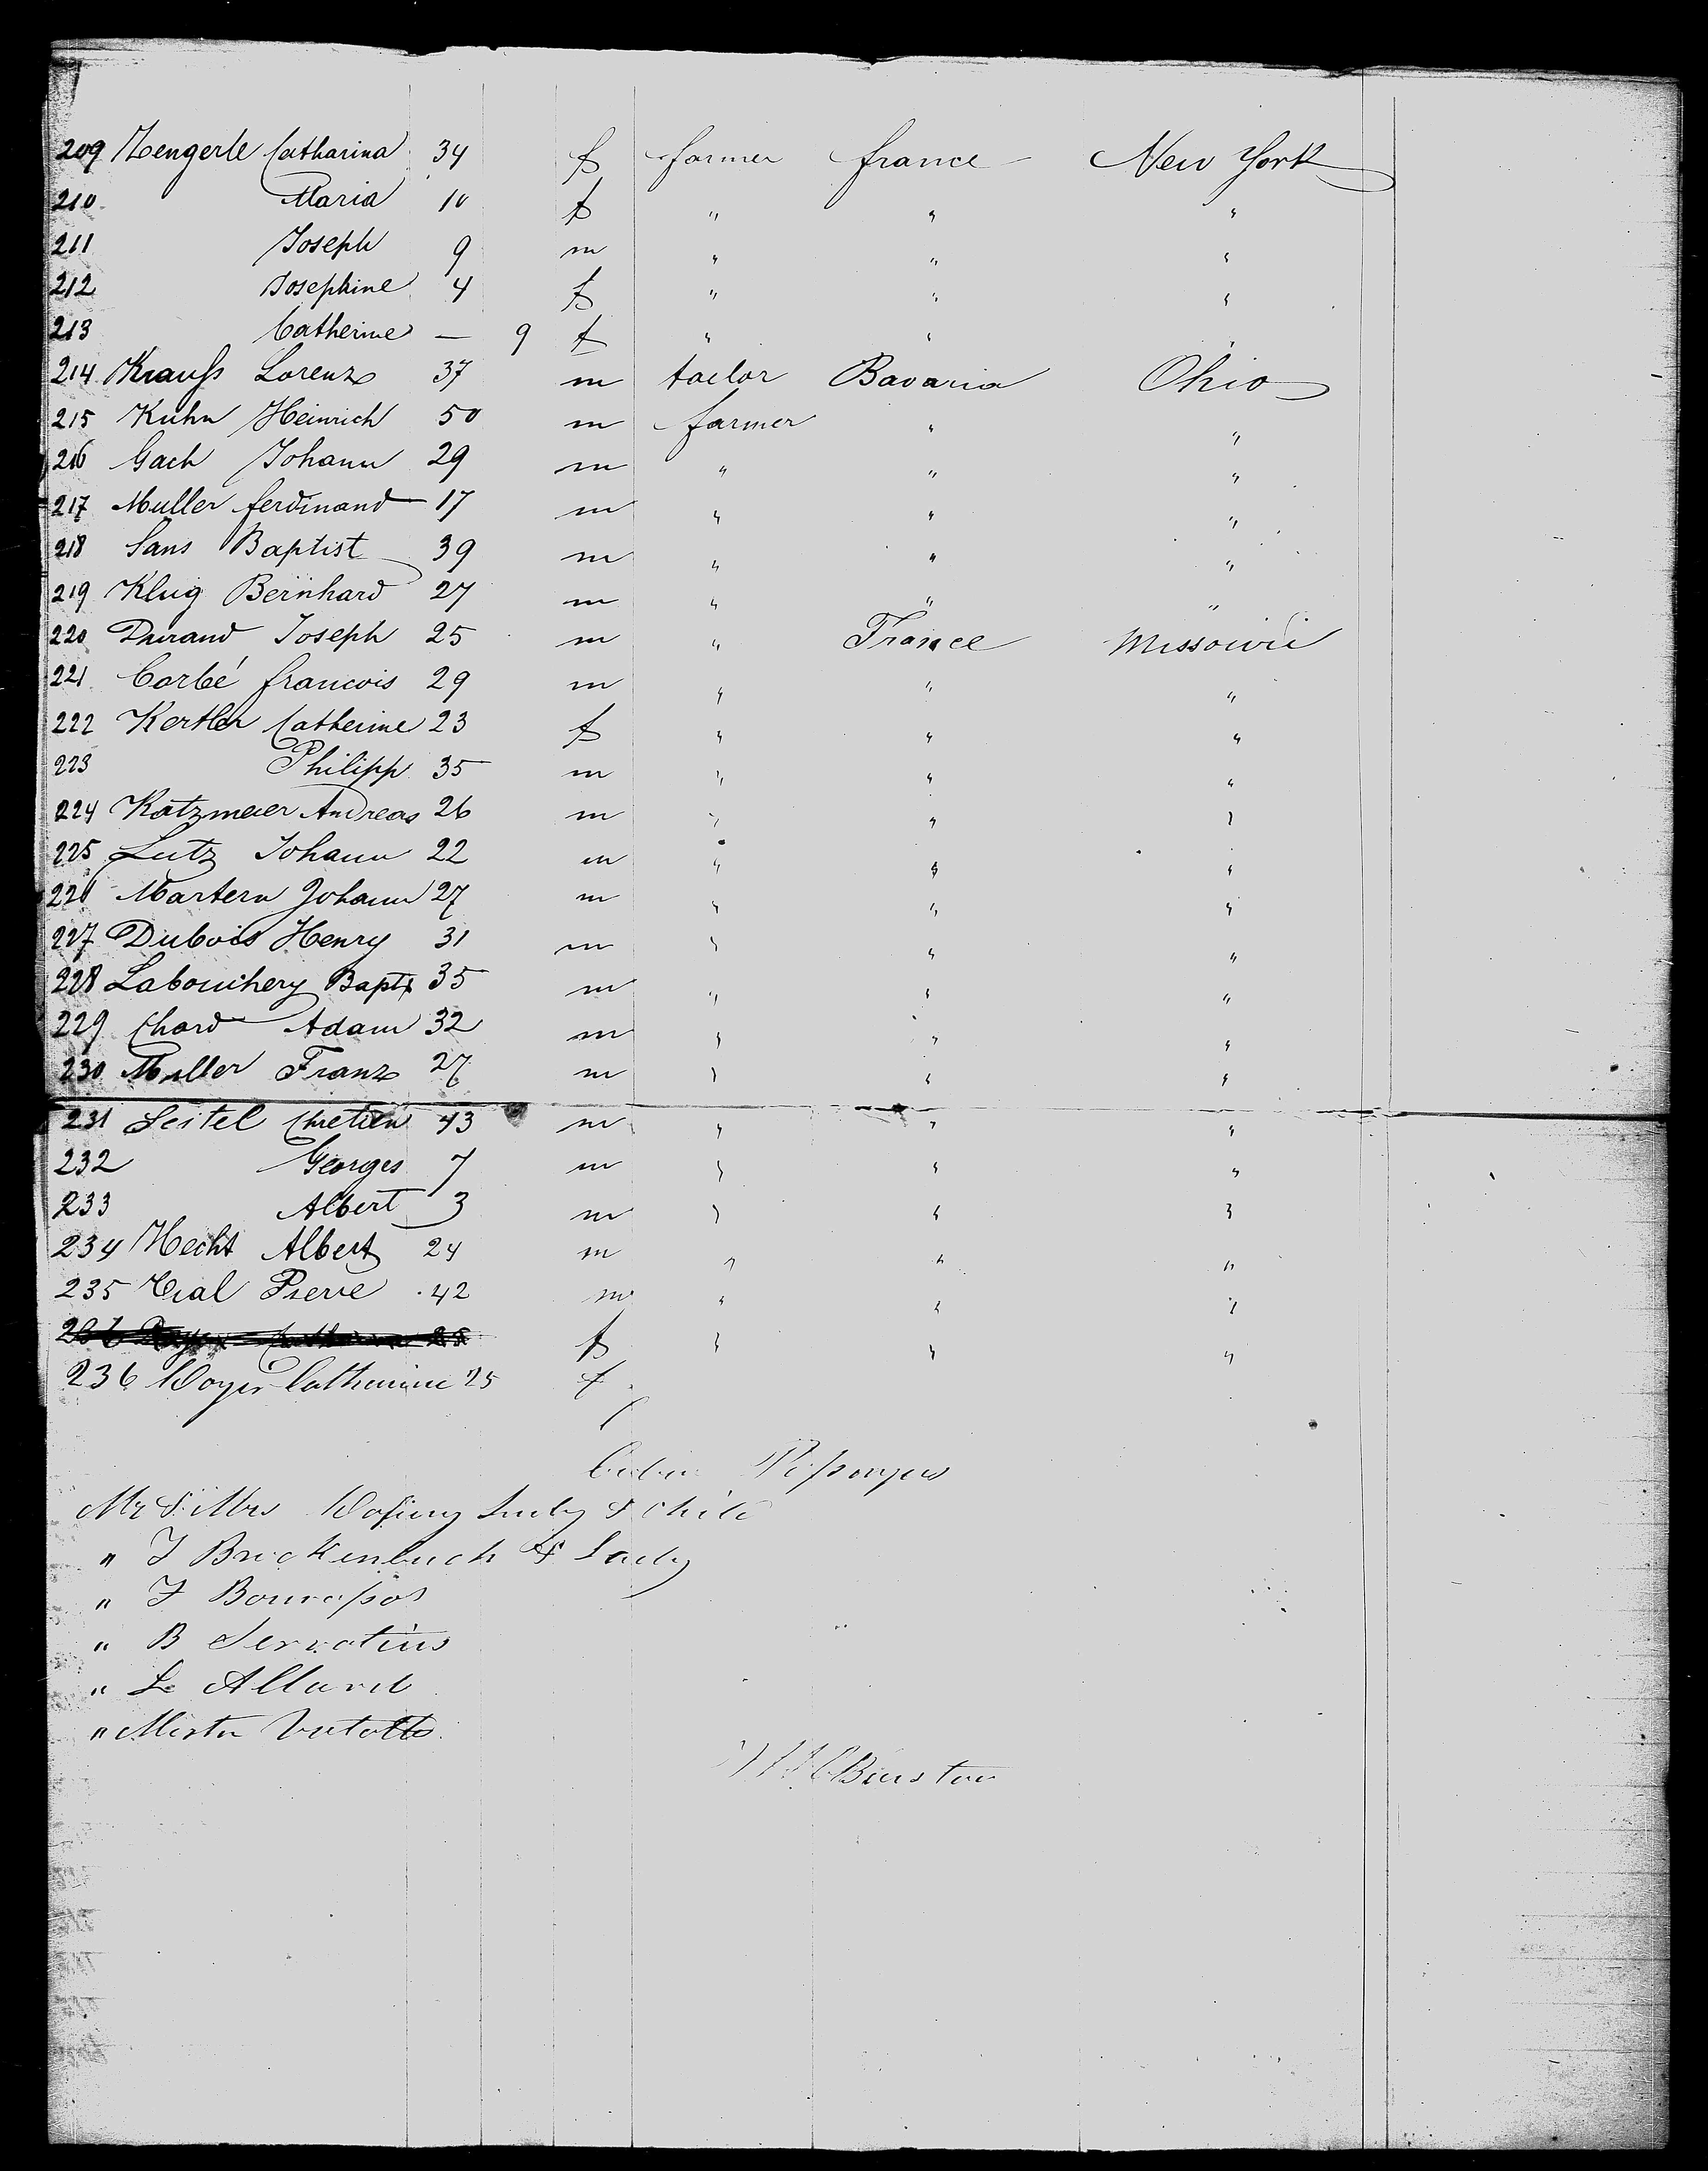 209 Zengerle Catharina 34 f farmer france New York
210 Maria 10 f " " "
211 Joseph 9 m " " "
212 Josephine 4 f " " "
213 Catherine — 9 f " " "
214 Krauss Lorenz 37 m tailor Bavaria Ohio
215 Kuhn Heinrich 50 m farmer " "
216 Gach Johann 29 m " " "
217 Muller ferdinand 17 m " " "
218 Sans Baptist 39 m " " "
219 Klug Bernhard 27 m " " "
220 Durand Joseph 25 m " France Missouri
221 Corbé francois 29 m " " "
222 Kertler Catherine 23 f " " "
223 Philipp 35 m " " "
224 Katzmeier Andreas 26 m " " "
225 Lutz Johann 22 m " " "
226 Martern Johann 27 m " " "
227 Dubois Henry 31 m " " "
228 Labouchery Bapt 35 m " " "
229 Chard Adam 32 m " " "
230 Muller Franz 27 m " " "
231 Seitel Chretien 43 m " " "
232 Georges 7 m " " "
233 Albert 3 m " " "
234 Hecht Albert 24 m " " "
235 Pierre 42 m " " "
236 25 f " " "
236 Catherine 25 f
Mr & Mrs Lady & Child
" J Brickenbuch & Lady
" J
" B Servatius
" L Allard
"